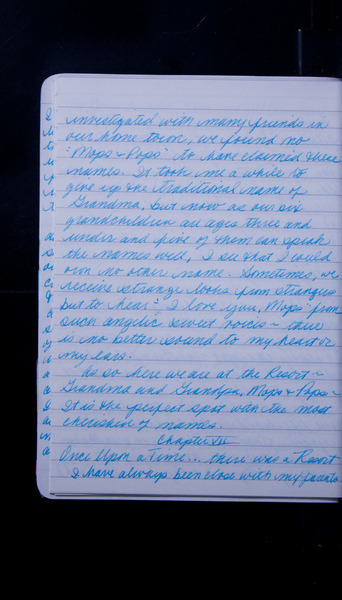 investigated with many friends in
our home town, we found no
"Mops & Pops" to have claimed these
names. It took me a while to
give up the traditional name of
Grandma, but now as our six
grandchildren all ages three and
under and five of them can speak
the names well, I see that I could
own no other name. Sometimes, we
receive strange looks from strangers
but to hear - I love you, Mops" from
such angelic sweet voices - there
is no better sound to my heart or
my ears.
As so here we are at the Resort ~
Grandma and Grandpa, Mops & Pops ~
It is the perfect spot with the most
cherished of names.
Chapter VII
Once Upon a Time... there was a Resort
I have always been close with my parents